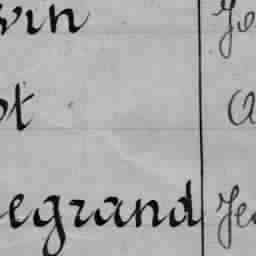 vin Je
ot A
egrand Jea